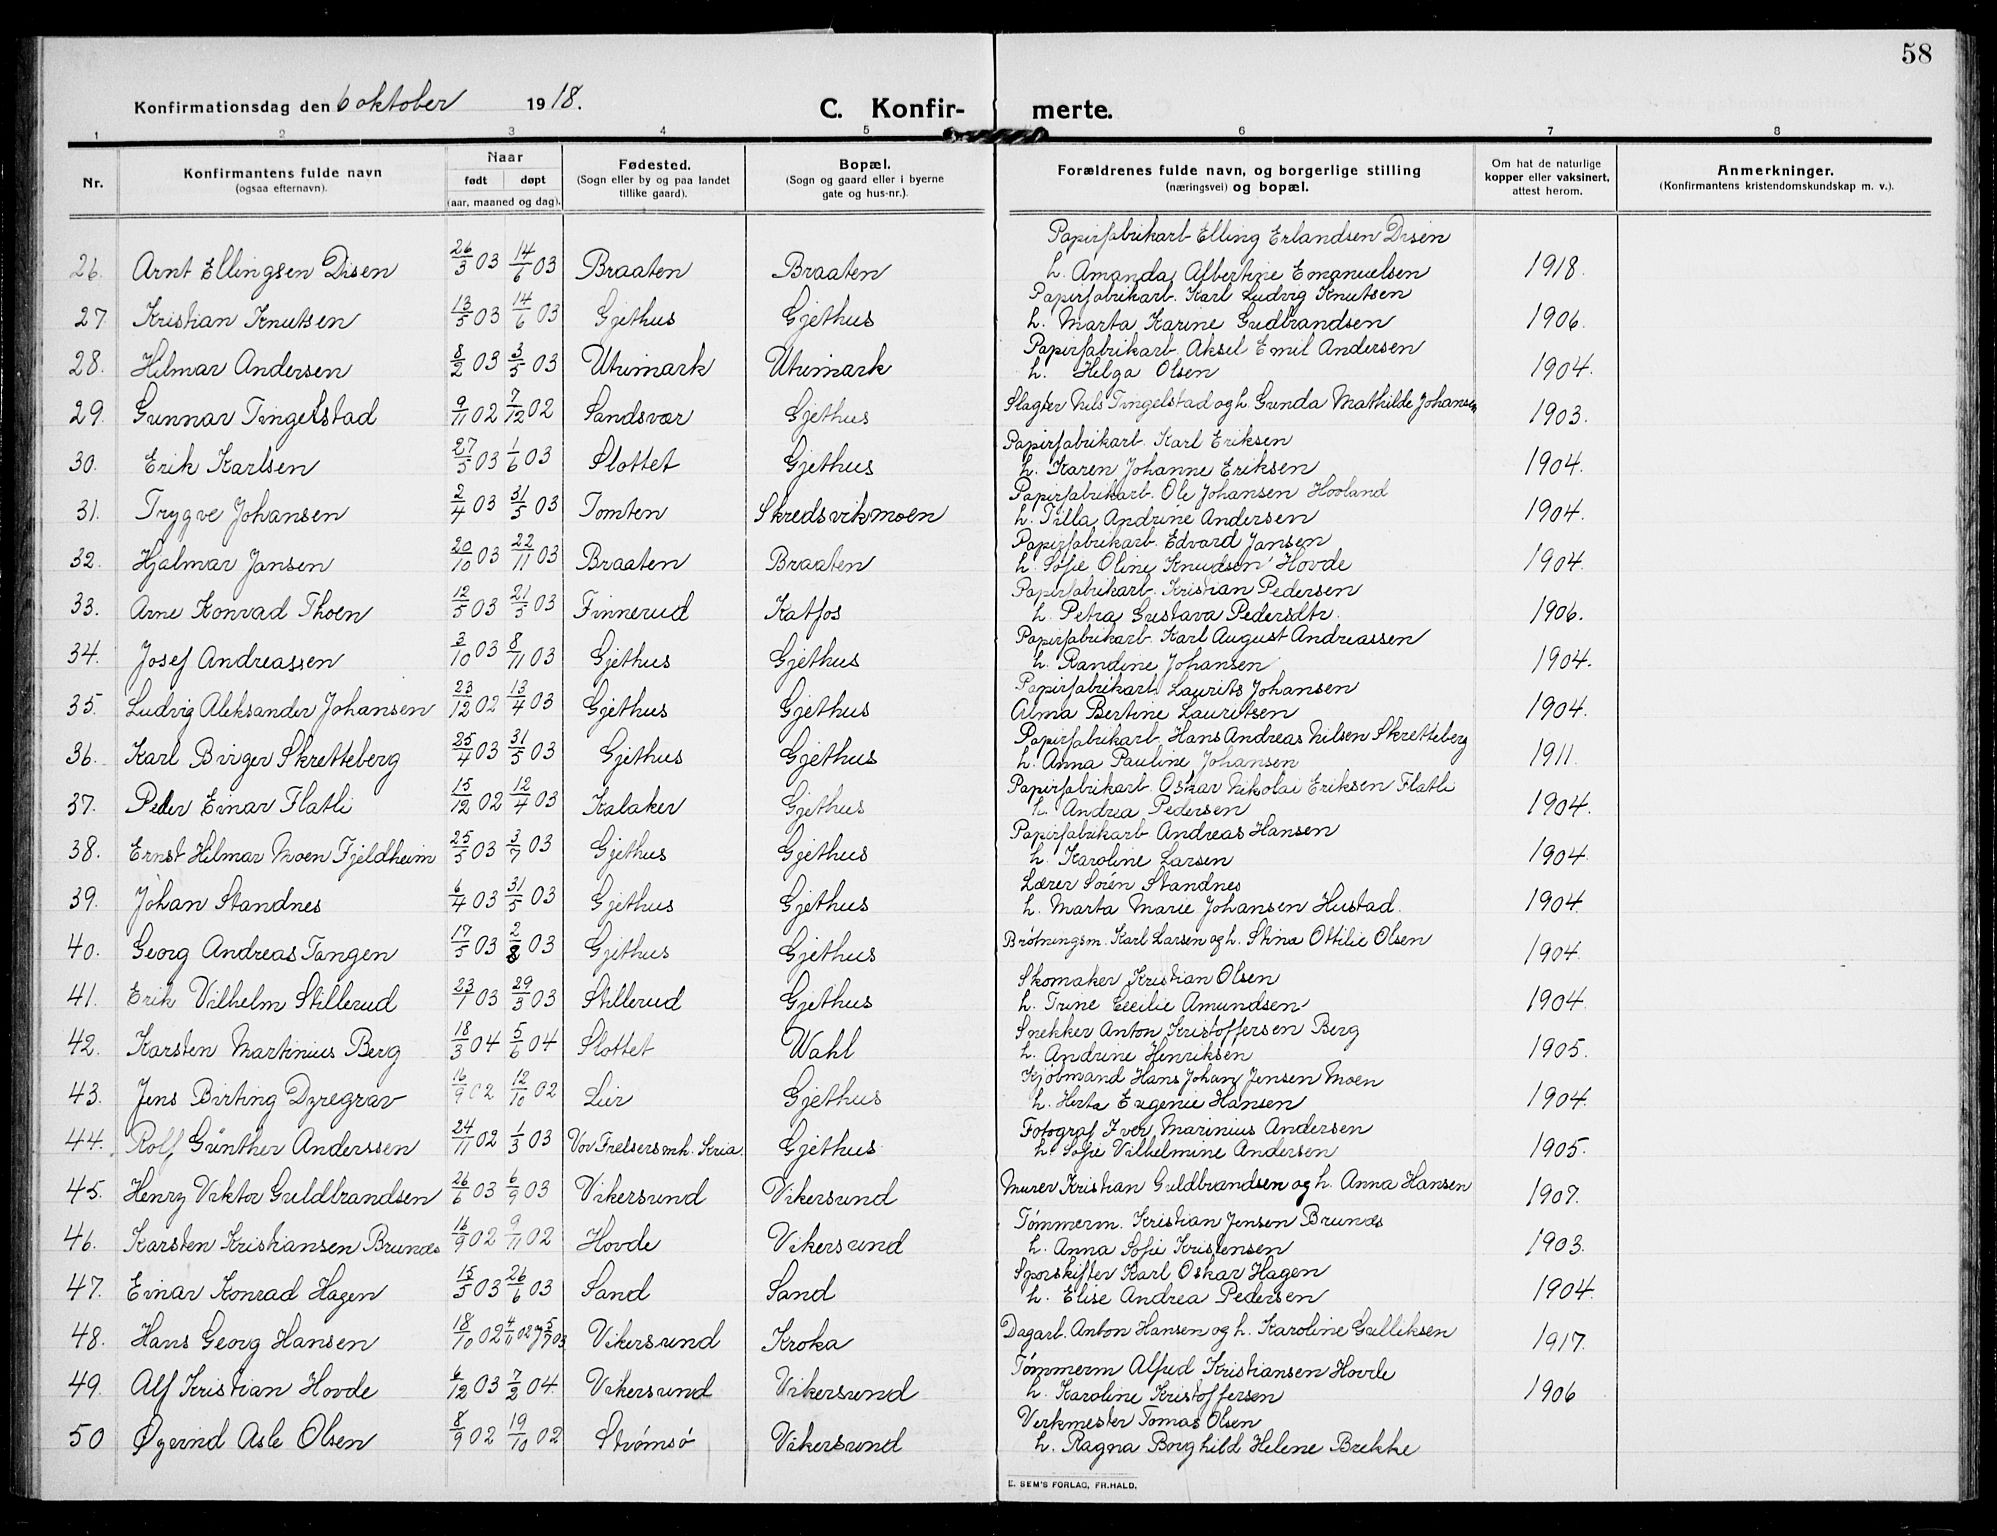 58
Konfirmationsdag den 6 oktober 1918.
C. Konfir- merte.
1 2 3 4 5 6 7 8
Nr.
Konfirmantens fulde navn
(ogsaa efternavn).
Naar
født døpt
(aar, maaned og dag).
Fødested.
(Sogn eller by og paa landet
tillike gaard).
Bopæl.
(Sogn og gaard eller i byerne
gate og hus-nr.).
Forældrenes fulde navn, og borgerlige stilling
(næringsvei) og bopæl.
Om hat de naturlige
kopper eller vaksinert,
attest herom.
Anmerkninger.
(Konfirmantens kristendomskundskap m. v.).
Papirfabrikarb. Elling Erlandsen Disen
26. Arnt Ellingsen Disen 26/3 03 14/6 03 Braaten Braaten h. Amanda Albertine Emanuelsen 1918.
Papirfabrikarb. Karl Ludvig Knutsen
27. Kristian Knutsen 13/5 03 14/6 03 Gjethus Gjethus h. Marta Karine Gudbrandsen 1906.
Papirfabrikarb. Aksel Emil Andersen
28. Hilmar Andersen 8/2 03 3/5 03 Utrimark Utrimark h. Helga Olsen 1904.
29. Gunnar Tingelstad 9/11 02 7/12 02 Sandsvær Gjethus Slagter Nils Tingelstad og h. Gunda Mathilde Johansen 1903.
Papirfabrikarb. Karl Eriksen
30. Erik Karlsen 27/5 03 1/6 03 Slottet Gjethus h. Karen Johanne Eriksen 1904.
Papirfabrikarb. Ole Johansen Hooland
31. Trygve Johansen 2/4 03 31/5 03 Tomten Skredsvikmoen h. Tilla Andrine Andersen 1904.
Papirfabrikarb. Edvard Jansen
32. Hjalmar Jansen 20/10 03 22/11 03 Braaten Braaten h. Sofie Oline Knudsen Hovde 1904.
Papirfabrikarb. Kristian Pedersen
33. Arne Konrad Thoen 12/5 03 21/5 03 Finnerud Katfos h. Petra Gustava Pedersdtr. 1906.
Papirfabrikarb. Karl August Andreassen
34. Josef Andreassen 3/10 03 8/11 03 Gjethus Gjethus h. Randine Johansen 1904.
Papirfabrikarb. Laurits Johansen
35. Ludvig Aleksander Johansen 23/12 02 13/4 03 Gjethus Gjethus Alma Bertine Lauritsen 1904.
Papirfabrikarb. Hans Andreas Nilsen Skretteberg
36. Karl Birger Skretteberg 25/4 03 31/5 03 Gjethus Gjethus h. Anna Pauline Johansen 1911.
Papirfabrikarb. Oskar Nikolai Eriksen Flatli
37. Peder Einar Flatli 15/12 02 12/4 03 Kalaker Gjethus h. Andrea Pedersen 1904.
Papirfabrikarb. Andreas Hansen
38. Ernst Hilmar Moen Fjeldheim 25/5 03 3/7 03 Gjethus Gjethus h. Karoline Larsen 1904.
Lærer Sørén Standnes
39. Johan Standnes 6/4 03 31/5 03 Gjethus Gjethus h. Marta Marie Johansen Hustad. 1904.
40. Georg Andreas Tangen 17/5 03 2/8 03 Gjethus Gjethus Brøtningsm. Karl Larsen og h. Stina Ottilie Olsen 1904.
Skomaker Kristian Olsen
41. Erik Vilhelm Stillerud 23/1 03 29/3 03 Stillerud Gjethus h. Trine Cecilie Amundsen 1904.
Snekker Anton Kristoffersen Berg
42. Karsten Martinius Berg 18/3 04 5/6 04 Slottet Wahl h. Andrine Henriksen 1905.
Kjøbmand Hans Johan Jensen Moen
43. Jens Birting Dyregrav 16/9 02 12/10 02 Lier Gjethus h. Herta Eugenie Hansen 1904.
Fotograf Iver Marinius Andersen
44. Rolf Günther Anderssen 24/11 02 1/3 03 Vor Frelsers mh. Kria. Gjethus h. Sofie Vilhelmine Andersen 1905.
45. Henry Viktor Guldbrandsen 26/6 03 6/9 03 Vikersund Vikersund Murer Kristian Guldbrandsen og h. Anna Hansen 1907.
Tømmerm. Kristian Jensen Brunæs
46. Karsten Kristiansen Brunæs 16/9 02 9/11 02 Hovde Vikersund h. Anna Sofie Kristensen 1903.
Sporskifter Karl Oskar Hagen
47. Einar Konrad Hagen 15/5 03 26/6 03 Sand Sand h. Elise Andrea Pedersen 1904.
48. Hans Georg Hansen 18/10 02 Vikersund Kroka Dagarb. Anton Hansen og h. Karoline Gulliksen 1917.
Tømmerm Alfred Kristiansen Hovde
49. Alf Kristian Hovde 6/12 03 7/2 04. Vikersund Vikersund h. Karoline Kristoffersen 1906
Verkmester Tomas Olsen
50 Øyvind Asle Olsen 8/9 02 19/10 02 Strømsø Vikersund h. Ragna Borghild Helene Brekke
E. SEM'S FORLAG, FR.HALD.